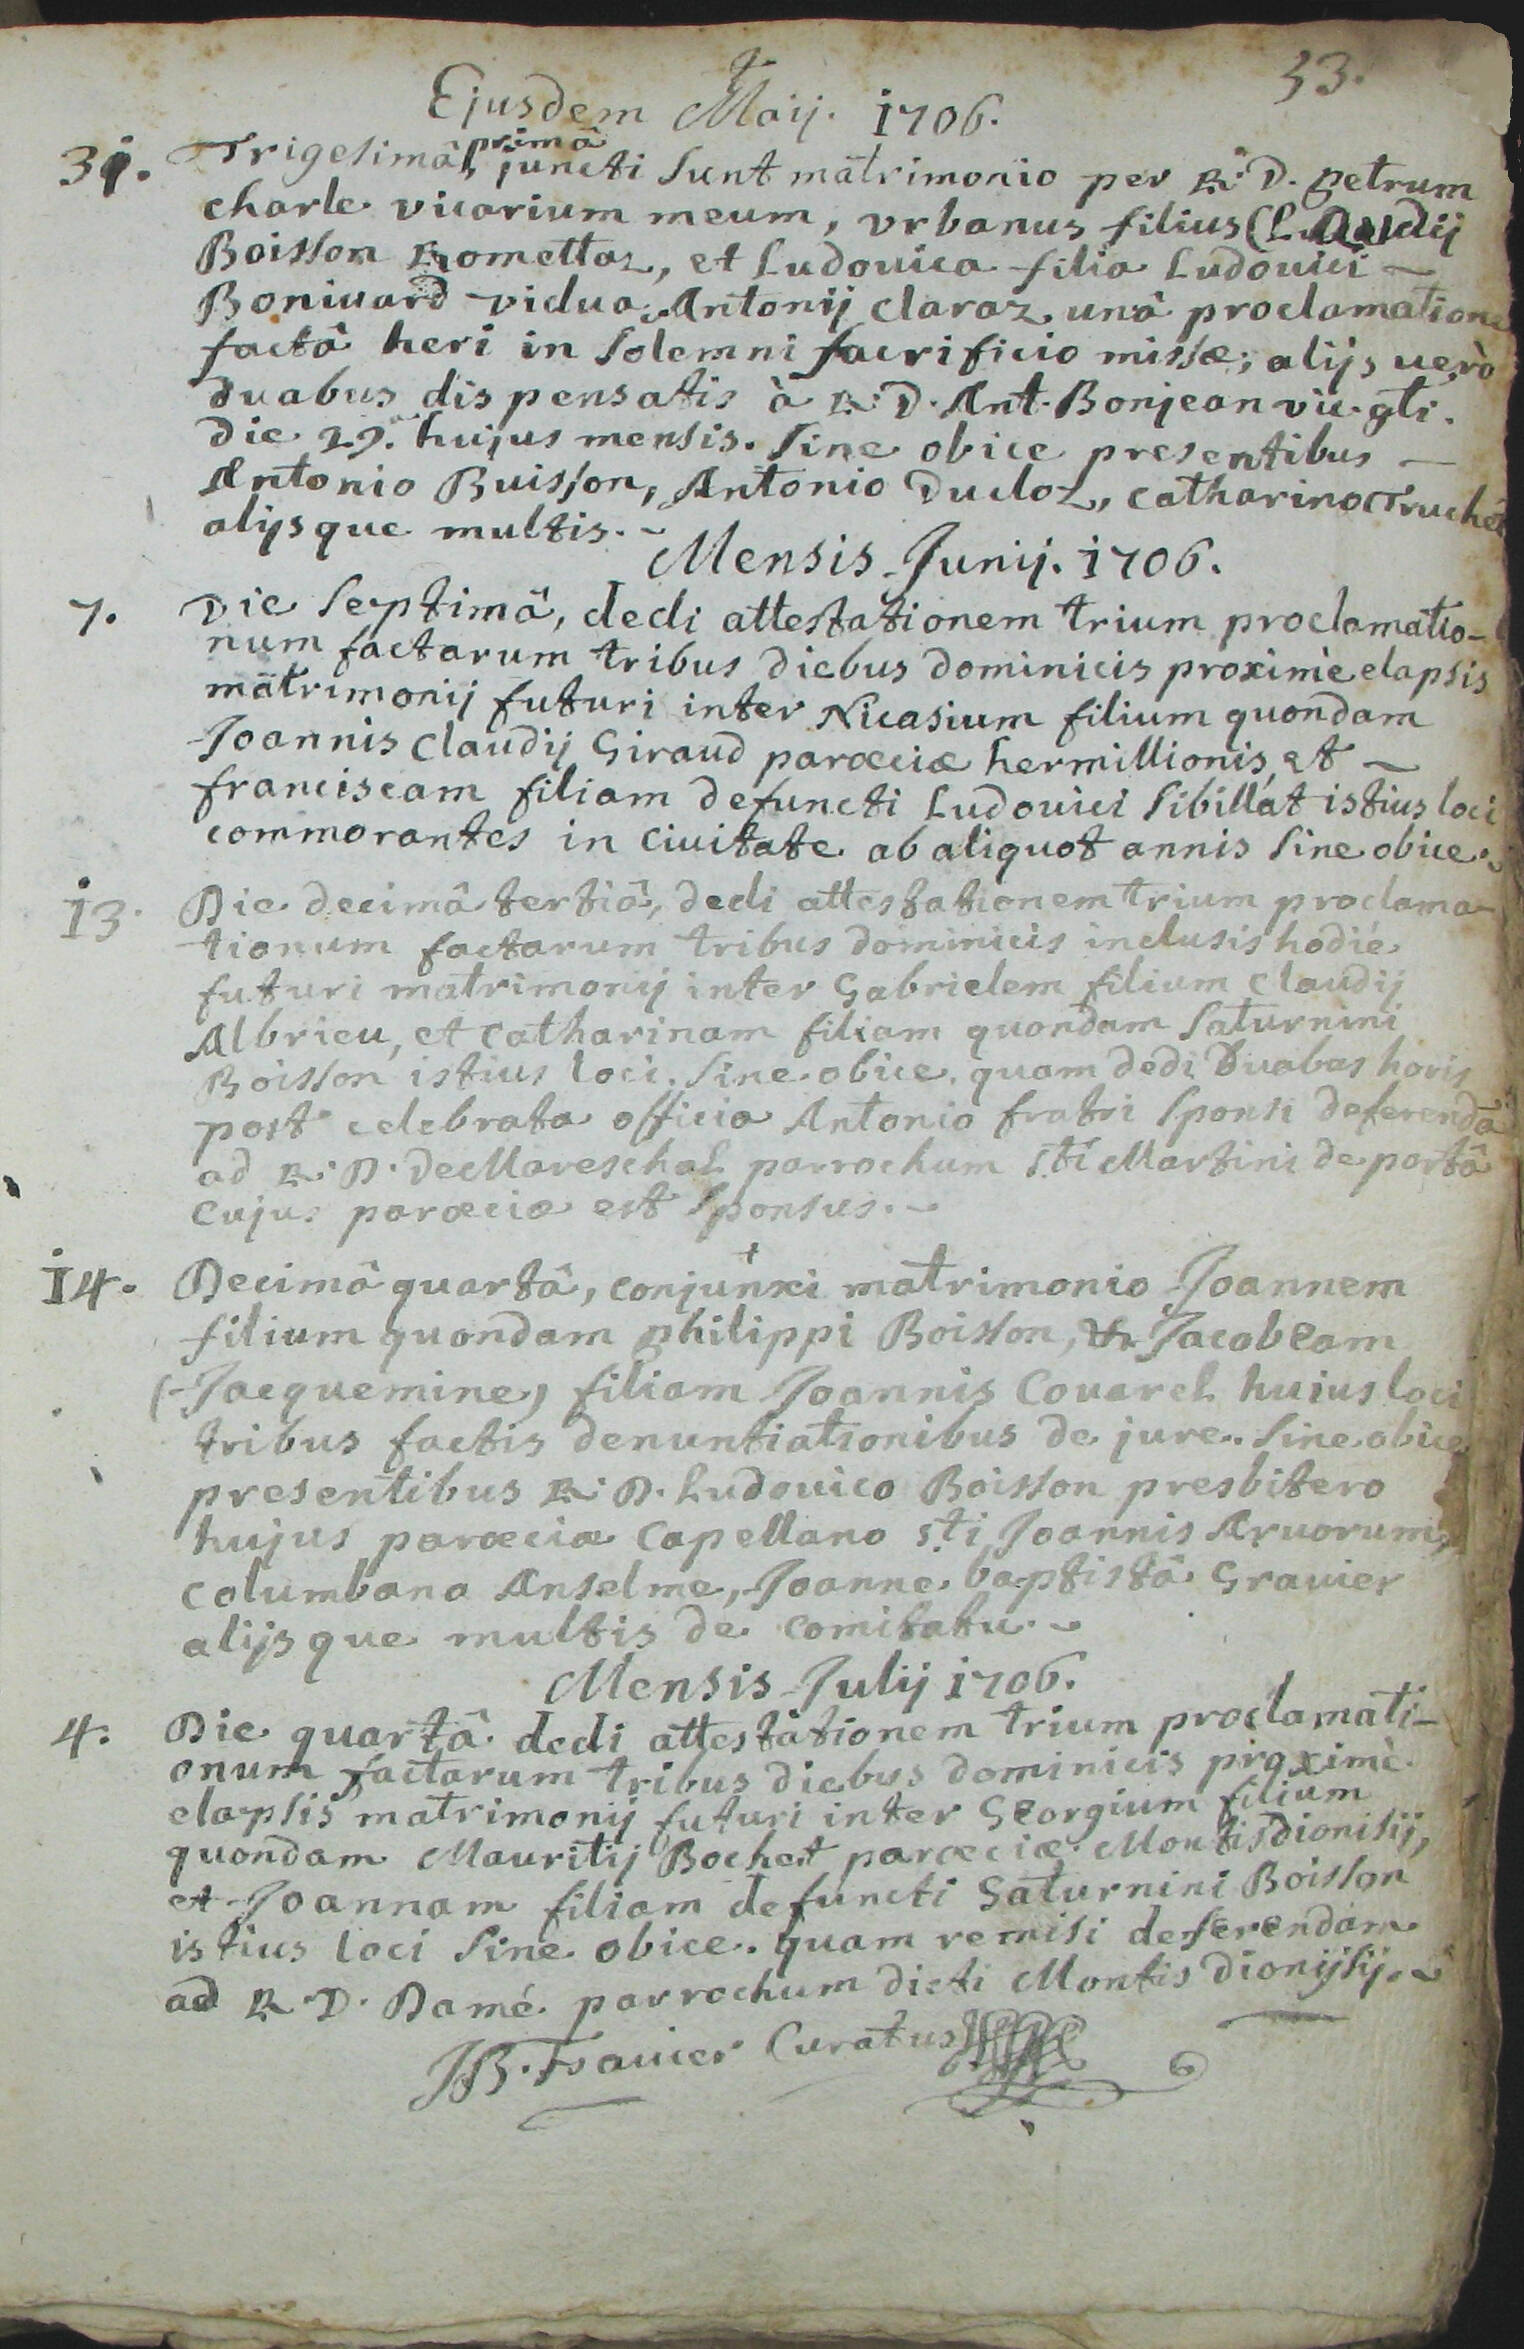 33.
Ejusdem Maij. 1706.
31. Trigesimâ primâ juncti sunt matrimonio per R. D. petrum
charle vicarium meum, vrbanus filius Claudij
Boisson Romettaz, et Ludouica filia Ludouici
Boniuard vidua Antonij claraz, unâ proclamatione
factâ heri in solemni sacrificio missæ; alijs uerò
duabus dispensatis à R. D. Ant. Bonjean vic. gli.
die 29.â hujus mensis. sine obice presentibus
Antonio Buisson, Antonio Ducloz, catharino Truchet
alijsque multis.
Mensis Junij. 1706.
7. Die septimâ, dedi attestationem trium proclamatio-
num factarum tribus diebus dominicis proximè elapsis
matrimonij futuri inter Nicasium filium quondam
Joannis Claudij Giraud parœciæ hermillionis, et
franciscam filiam defuncti Ludouici Sibillat istius loci
commorantes in ciuitate ab aliquot annis sine obice.
13. Die decimâ tertiâ, dedi attestationem trium proclama-
tionum factarum tribus dominicis inclusis hodiè
futuri matrimonij inter Gabrielem filium Claudij
Albrieu, et catharinam filiam quondam Saturnini
Boisson istius loci. sine obice. quam dedi duabus horis
post celebrata officia Antonio fratri sponsi deferendã
ad R. D. DeMareschal parrochum sti Martini de portâ
cujus parœciæ est sponsus.
14. Decimâ quartâ, conjunxi matrimonio Joannem
filium quondam philippi Boisson, & Jacobeam
(Jacquemine) filiam Joannis Couarel huius loci
tribus factis denuntiationibus de jure. sine obice
presentibus R. D. Ludouico Boisson presbitero
hujus parœciæ Capellano sti Joannis Aruorum,
Columbano Anselme, Joanne baptistâ Grauier
alijsque multis de comitatu.
Mensis Julij 1706.
4. Die quartâ dedi attestationem trium proclamati-
onum factarum tribus diebus dominicis proximè
elapsis, matrimonij futuri inter Georgium filium
quondam Mauritij Bochet parœciæ Montisdionisij,
et Joannam filiam defuncti Saturnini Boisson
istius loci sine obice. quam remisi deferendam
ad R. D. Damé parrochum dicti Montis dionijsij.
JB. Curatus